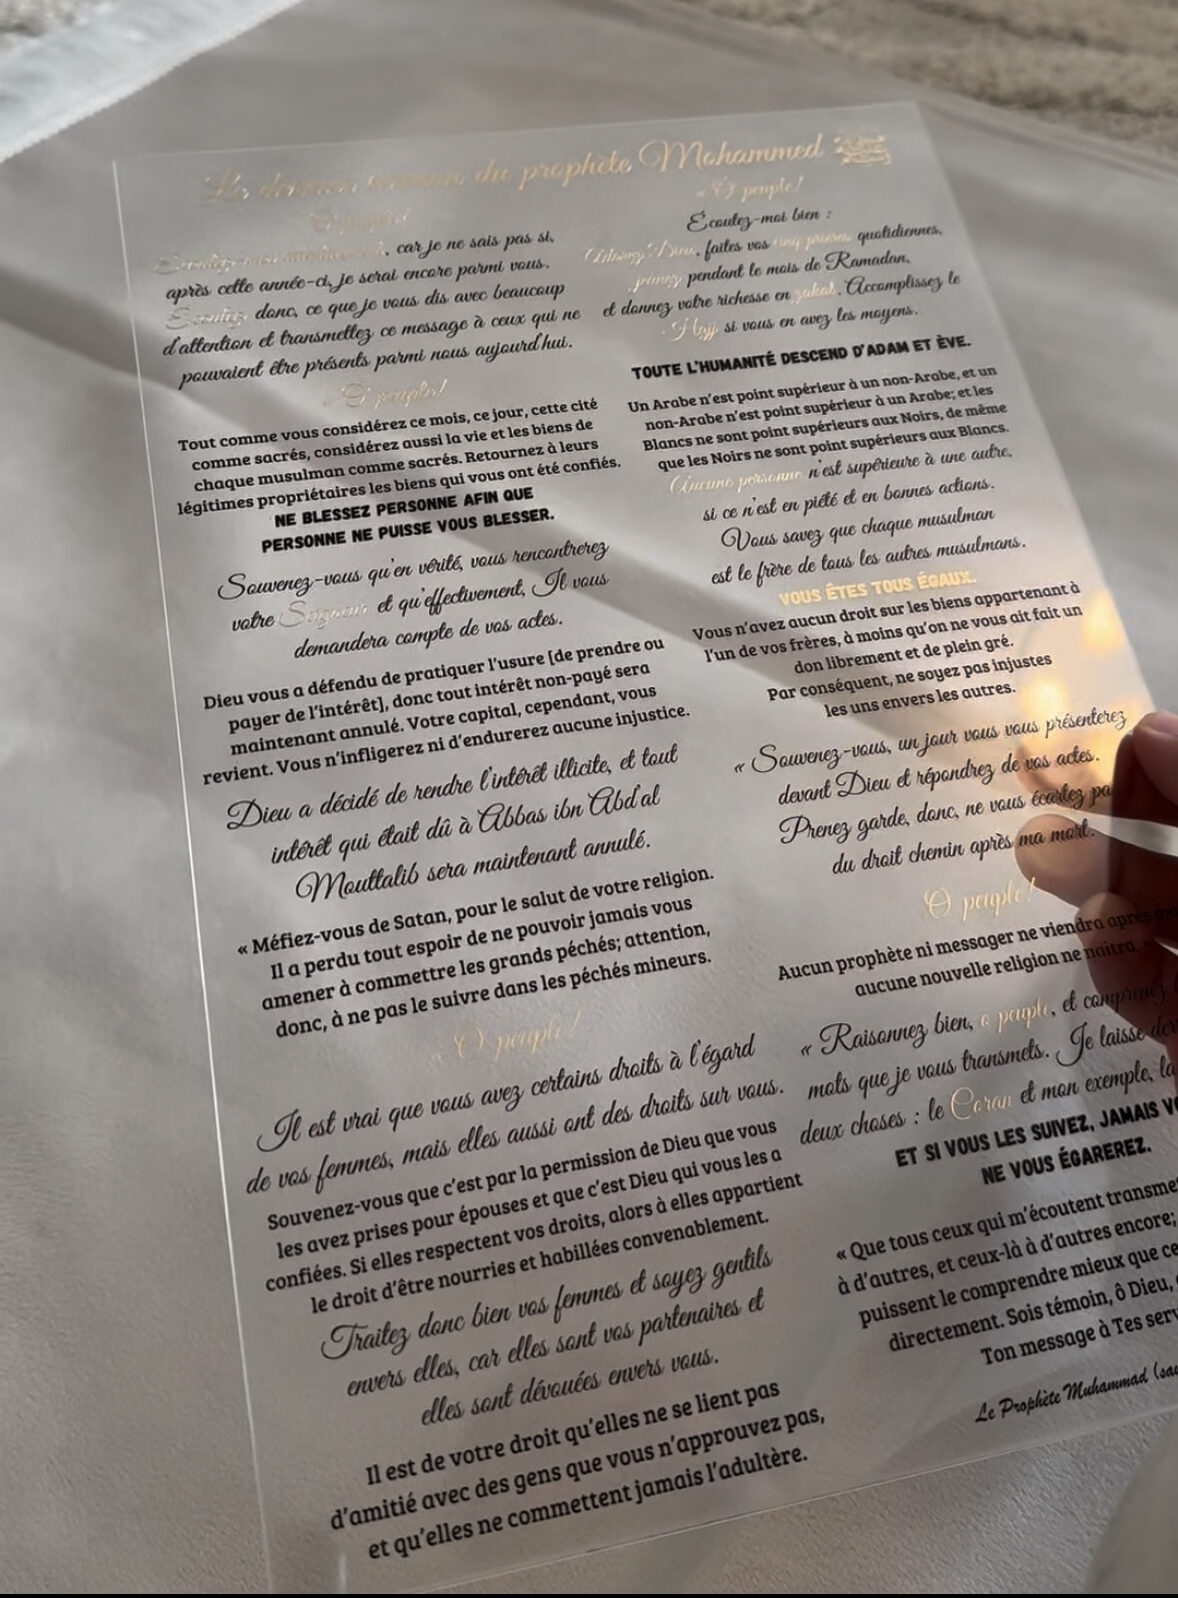 Le dernier sermon du prophète Mohammed
« Ô peuple!
Écoutez-moi attentivement, car je ne sais pas si,
après cette année-ci, je serai encore parmi vous.
Écoutez donc, ce que je vous dis avec beaucoup
d'attention et transmettez ce message à ceux qui ne
pouvaient être présents parmi nous aujourd'hui.
« Ô peuple!
Tout comme vous considérez ce mois, ce jour, cette cité
comme sacrés, considérez aussi la vie et les biens de
chaque musulman comme sacrés. Retournez à leurs
légitimes propriétaires les biens qui vous ont été confiés.
NE BLESSEZ PERSONNE AFIN QUE
PERSONNE NE PUISSE VOUS BLESSER.
Souvenez-vous qu'en vérité, vous rencontrerez
votre Seigneur et qu'effectivement, Il vous
demandera compte de vos actes.
Dieu vous a défendu de pratiquer l'usure [de prendre ou
payer de l'intérêt], donc tout intérêt non-payé sera
maintenant annulé. Votre capital, cependant, vous
revient. Vous n'infligerez ni d'endurerez aucune injustice.
Dieu a décidé de rendre l'intérêt illicite, et tout
intérêt qui était dû à 'Abbas ibn 'Abd'al
Mouttalib sera maintenant annulé.
« Méfiez-vous de Satan, pour le salut de votre religion.
Il a perdu tout espoir de ne pouvoir jamais vous
amener à commettre les grands péchés; attention,
donc, à ne pas le suivre dans les péchés mineurs.
« Ô peuple!
Il est vrai que vous avez certains droits à l'égard
de vos femmes, mais elles aussi ont des droits sur vous.
Souvenez-vous que c'est par la permission de Dieu que vous
les avez prises pour épouses et que c'est Dieu qui vous les a
confiées. Si elles respectent vos droits, alors à elles appartient
le droit d'être nourries et habillées convenablement.
Traitez donc bien vos femmes et soyez gentils
envers elles, car elles sont vos partenaires et
elles sont dévouées envers vous.
Il est de votre droit qu'elles ne se lient pas
d'amitié avec des gens que vous n'approuvez pas,
et qu'elles ne commettent jamais l'adultère.
« Ô peuple!
Écoutez-moi bien :
Adorez Dieu, faites vos cinq prières quotidiennes,
jeûnez pendant le mois de Ramadan,
et donnez votre richesse en zakat. Accomplissez le
Hajj si vous en avez les moyens.
TOUTE L'HUMANITÉ DESCEND D'ADAM ET ÈVE.
Un Arabe n'est point supérieur à un non-Arabe, et un
non-Arabe n'est point supérieur à un Arabe; et les
Blancs ne sont point supérieurs aux Noirs, de même
que les Noirs ne sont point supérieurs aux Blancs.
Aucune personne n'est supérieure à une autre,
si ce n'est en piété et en bonnes actions.
Vous savez que chaque musulman
est le frère de tous les autres musulmans.
VOUS ÊTES TOUS ÉGAUX.
Vous n'avez aucun droit sur les biens appartenant à
l'un de vos frères, à moins qu'on ne vous ait fait un
don librement et de plein gré.
Par conséquent, ne soyez pas injustes
les uns envers les autres.
« Souvenez-vous, un jour vous vous présenterez
devant Dieu et répondrez de vos actes.
Prenez garde, donc, ne vous écartez pa
du droit chemin après ma mort.
Ô peuple!
Aucun prophète ni messager ne viendra après mo
aucune nouvelle religion ne naîtra.
« Raisonnez bien, ô peuple, et comprenez
mots que je vous transmets. Je laisse der
deux choses : le Coran et mon exemple, la
ET SI VOUS LES SUIVEZ, JAMAIS VO
NE VOUS ÉGAREREZ.
« Que tous ceux qui m'écoutent transme
à d'autres, et ceux-là à d'autres encore;
puissent le comprendre mieux que ce
directement. Sois témoin, ô Dieu,
Ton message à Tes serv
Le Prophète Muhammad (sa